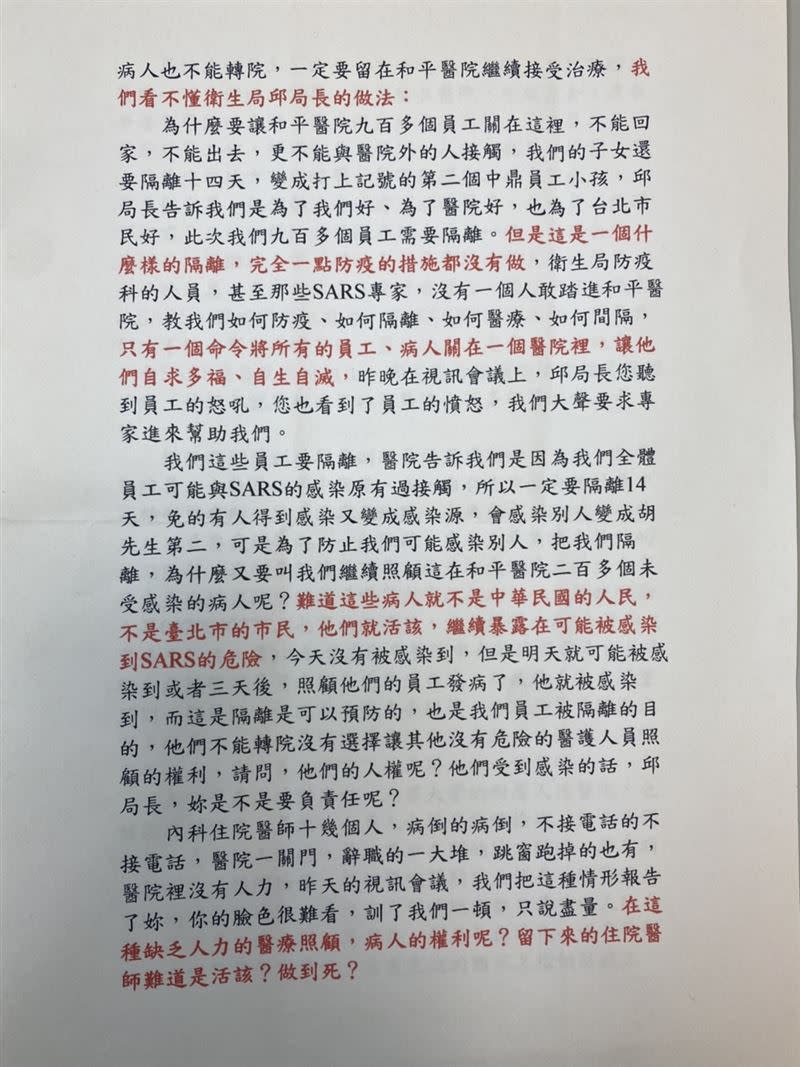 病人也不能轉院，一定要留在和平醫院繼續接受治療，我
們看不懂衛生局邱局長的做法：
為什麼要讓和平醫院九百多個員工關在這裡，不能回
家，不能出去，更不能與醫院外的人接觸，我們的子女還
要隔離十四天，變成打上記號的第二個中鼎員工小孩，邱
局長告訴我們是為了我們好、為了醫院好，也為了台北市
民好，此次我們九百多個員工需要隔離。但是這是一個什
麼樣的隔離，完全一點防疫的措施都沒有做，衛生局防疫
科的人員，甚至那些SARS專家，沒有一個人敢踏進和平醫
院，教我們如何防疫、如何隔離、如何醫療、如何間隔，
只有一個命令將所有的員工、病人關在一個醫院裡，讓他
們自求多福、自生自滅，昨晚在視訊會議上，邱局長您聽
到員工的怒吼，您也看到了員工的憤怒，我們大聲要求專
家進來幫助我們。
我們這些員工要隔離，醫院告訴我們是因為我們全體
員工可能與SARS的感染原有過接觸，所以一定要隔離14
天，免的有人得到感染又變成感染源，會感染別人變成胡
先生第二，可是為了防止我們可能感染別人，把我們隔
離，為什麼又要叫我們繼續照顧這在和平醫院二百多個未
受感染的病人呢？難道這些病人就不是中華民國的人民，
不是臺北市的市民，他們就活該，繼續暴露在可能被感染
到SARS的危險，今天沒有被感染到，但是明天就可能被感
染到或者三天後，照顧他們的員工發病了，他就被感染
到，而這是隔離是可以預防的，也是我們員工被隔離的目
的，他們不能轉院沒有選擇讓其他沒有危險的醫護人員照
顧的權利，請問，他們的人權呢？他們受到感染的話，邱
局長，妳是不是要負責任呢？
內科住院醫師十幾個人，病倒的病倒，不接電話的不
接電話，醫院一關門，辭職的一大堆，跳窗跑掉的也有，
醫院裡沒有人力，昨天的視訊會議，我們把這種情形報告
了妳，你的臉色很難看，訓了我們一頓，只說盡量。在這
種缺乏人力的醫療照顧，病人的權利呢？留下來的住院醫
師難道是活該？做到死？